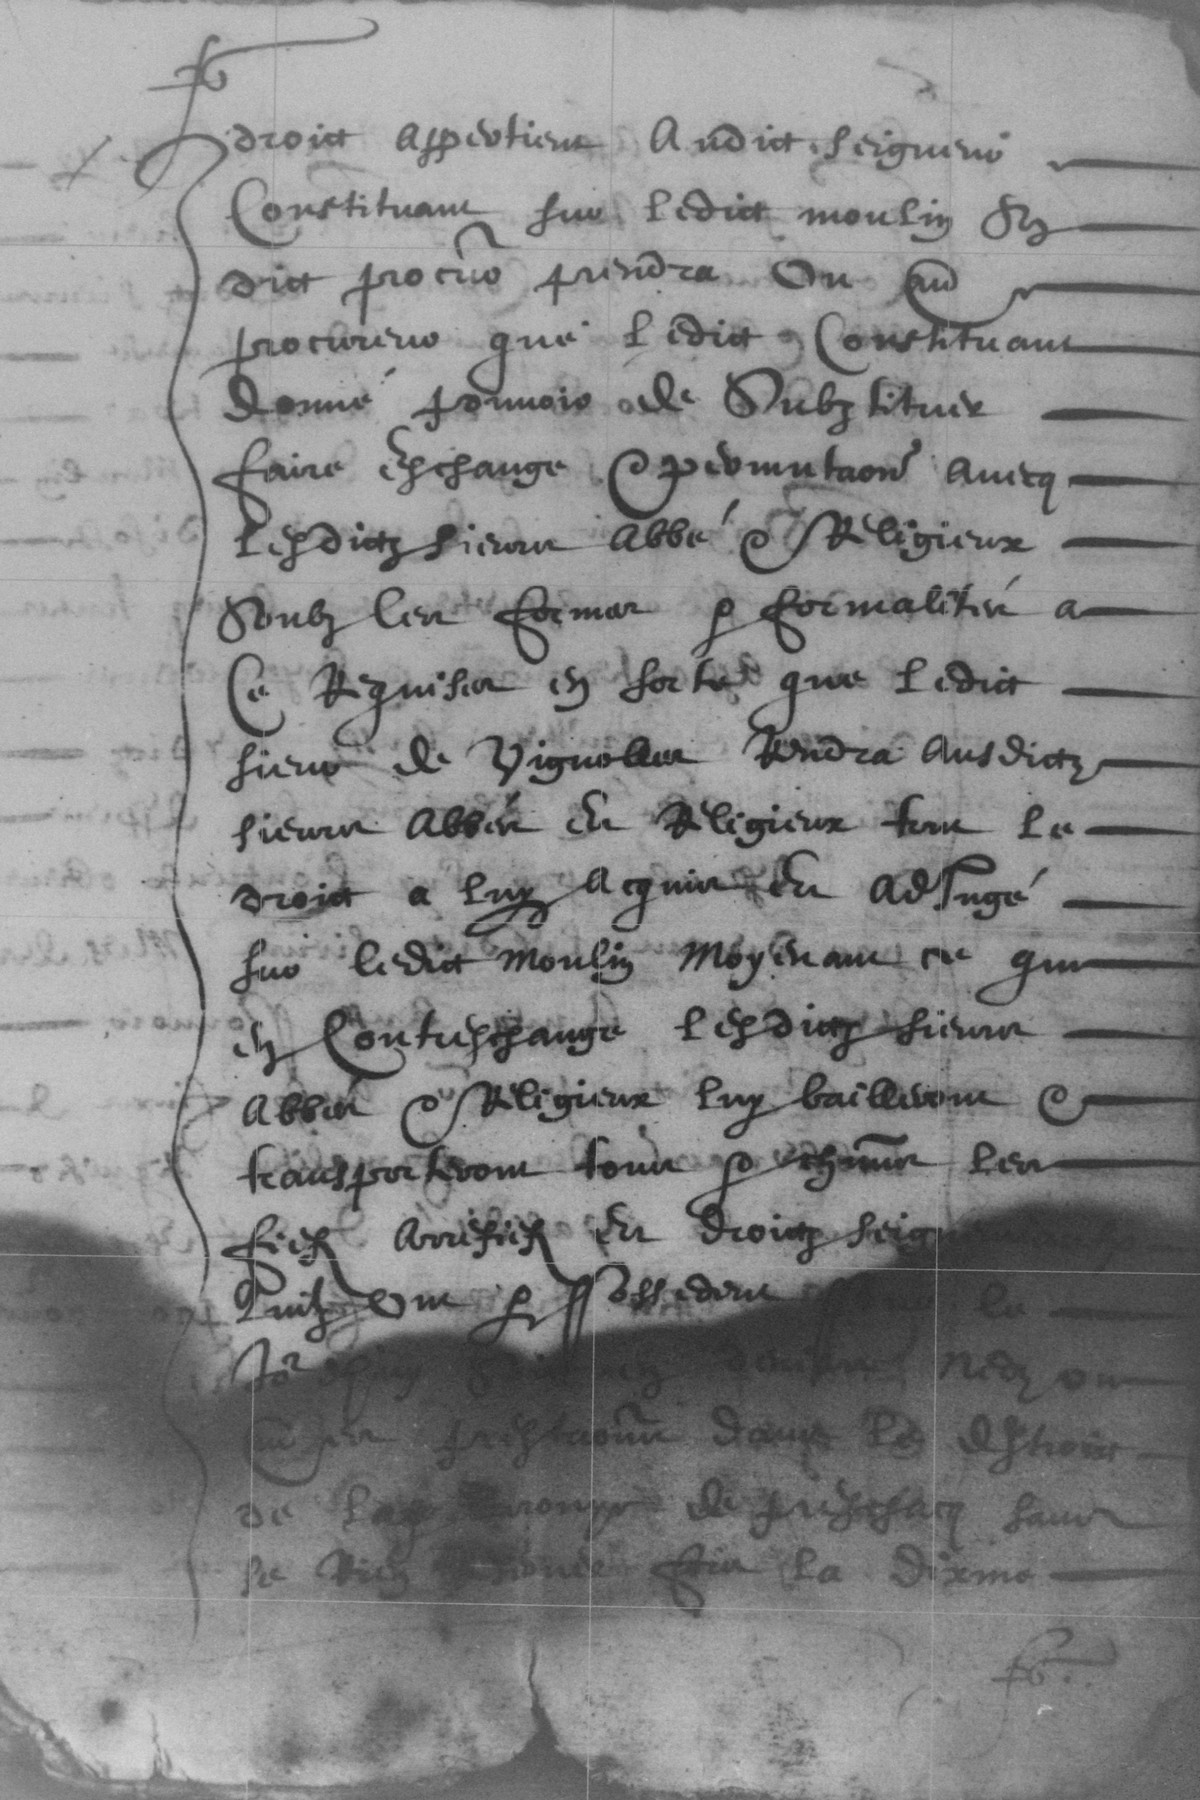 droict appertient Audict seigneur
Constituant sur ledict moulin
dict procur prendra Ou
procureur que ledict Constituant
donné pouuoir de Substituer
faire eschange & permutaon auecq
lesdictz sieurs Abbé & Religieux
Soubz les formes & formalités a
Ce Requises en sorte que ledict
sieur de Vignolles Rendra Ausdictz
sieurs Abbés Et Religieux tout le
droict a luy Acquis Et adIugé
sur ledict Moulin Moyenant ce que
en Contreschange lesdictz sieurs
Abbés & Religieux luy bailleront &
transporteront tous & chuns les
fiefz Arrefiefz Et droictz
quilz Ont & possedent le
ou
prestaons dans le destroict
de de preschacq sauf
se Rien la dixme